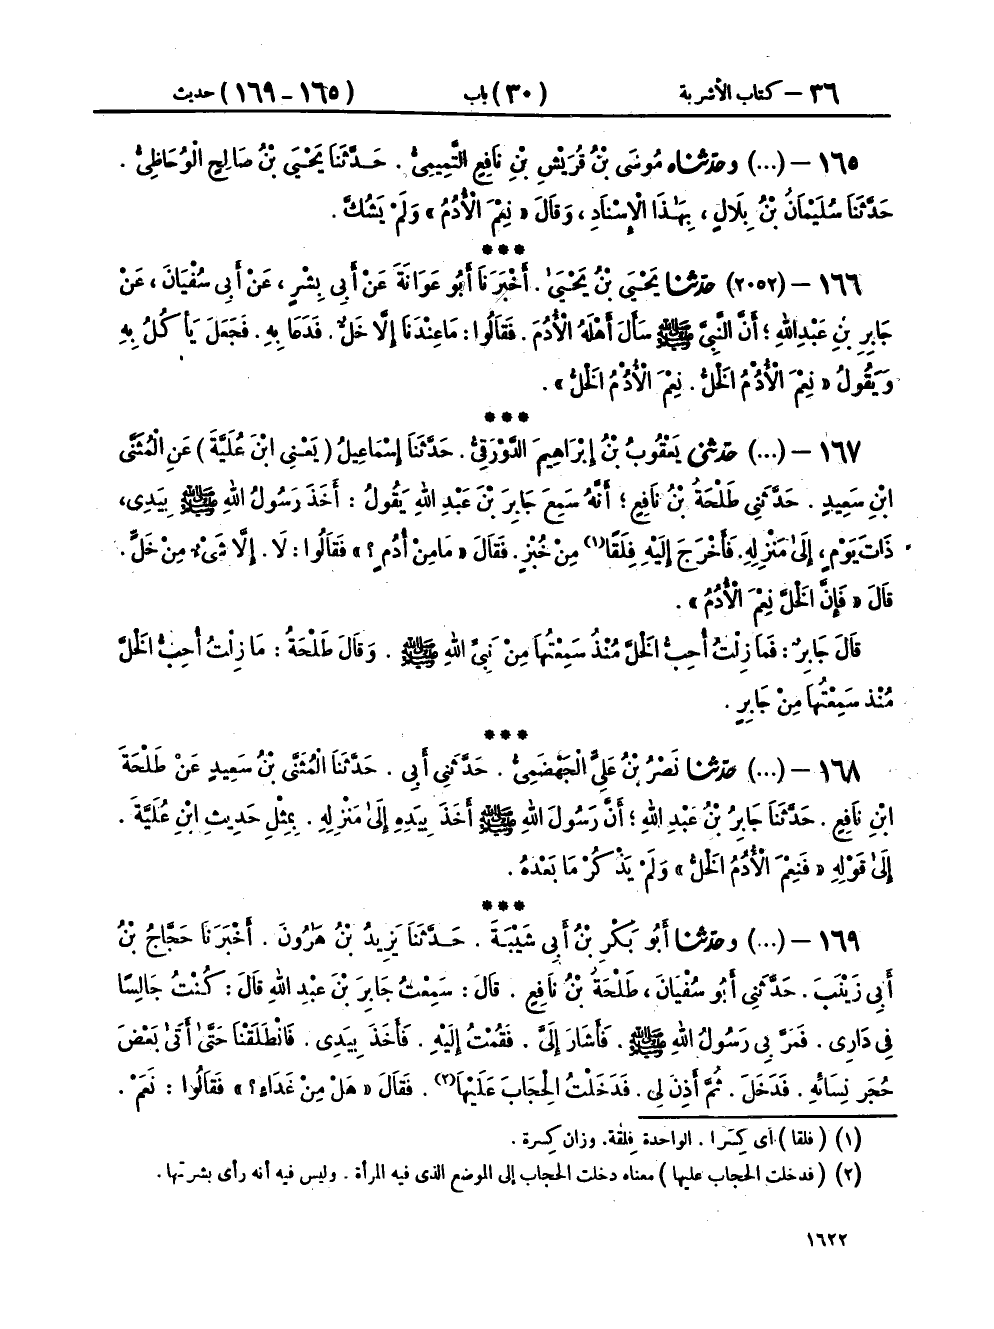 ٣٦ – كتاب الأشربة (٣٠) باب (١٦٥ – ١٦٩) حديث
١٦٥ – (...) وحَدَّثَنَاه مُوسَى بْنُ قُرَيْشِ بْنِ نَافِعٍ التَّمِيمِىُّ . حَدَّثَنَا يَحْيَى بْنُ صَالِحٍ الْوُحَاظِىُّ .
حَدَّثَنَا سُلَيْمَانُ بْنُ بِلَالٍ ، بِهَٰذَا الْإِسْنَادِ ، وَقَالَ « نِعْمَ الْأُدُمُ » وَلَمْ يَشُكَّ .
***
١٦٦ – (٢٠٥٢) حَدَّثَنَا يَحْيَى بْنُ يَحْيَىٰ . أَخْبَرَنَا أَبُو عَوَانَةَ عَنْ أَبِى بِشْرٍ ، عَنْ أَبِى سُفْيَانَ ، عَنْ
جَابِرِ بْنِ عَبْدِ اللهِ ؛ أَنَّ النَّبِىَّ ﷺ سَأَلَ أَهْلَهُ الْأُدُمَ . فَقَالُوا : مَا عِنْدَنَا إِلَّا خَلٌّ . فَدَعَا بِهِ . فَجَعَلَ يَأْكُلُ بِهِ
وَيَقُولُ « نِعْمَ الْأُدُمُ الْخَلُّ . نِعْمَ الْأُدُمُ الْخَلُّ » .
***
١٦٧ – (...) حَدَّثَنِى يَعْقُوبُ بْنُ إِبْرَاهِيمَ الدَّوْرَقِىُّ . حَدَّثَنَا إِسْمَاعِيلُ ( يَعْنِى ابْنَ عُلَيَّةَ ) عَنِ الْمُثَنَّى
ابْنِ سَعِيدٍ . حَدَّثَنِى طَلْحَةُ بْنُ نَافِعٍ ؛ أَنَّهُ سَمِعَ جَابِرَ بْنَ عَبْدِ اللهِ يَقُولُ : أَخَذَ رَسُولُ اللهِ ﷺ بِيَدِى ،
ذَاتَ يَوْمٍ ، إِلَىٰ مَنْزِلِهِ . فَأَخْرَجَ إِلَيْهِ فِلَقًا(١) مِنْ خُبْزٍ . فَقَالَ « مَا مِنْ أُدُمٍ ؟ » فَقَالُوا : لَا . إِلَّا شَىْءٌ مِنْ خَلٍّ .
قَالَ « فَإِنَّ الْخَلَّ نِعْمَ الْأُدُمُ » .
قَالَ جَابِرٌ : فَمَا زِلْتُ أُحِبُّ الْخَلَّ مُنْذُ سَمِعْتُهَا مِنْ نَبِىِّ اللهِ ﷺ . وَقَالَ طَلْحَةُ : مَا زِلْتُ أُحِبُّ الْخَلَّ
مُنْذُ سَمِعْتُهَا مِنْ جَابِرٍ .
***
١٦٨ – (...) حَدَّثَنَا نَصْرُ بْنُ عَلِىٍّ الْجَهْضَمِىُّ . حَدَّثَنِى أَبِى . حَدَّثَنَا الْمُثَنَّى بْنُ سَعِيدٍ عَنْ طَلْحَةَ
ابْنِ نَافِعٍ . حَدَّثَنَا جَابِرُ بْنُ عَبْدِ اللهِ ؛ أَنَّ رَسُولَ اللهِ ﷺ أَخَذَ بِيَدِهِ إِلَىٰ مَنْزِلِهِ . بِمِثْلِ حَدِيثِ ابْنِ عُلَيَّةَ .
إِلَىٰ قَوْلِهِ « فَنِعْمَ الْأُدُمُ الْخَلُّ » وَلَمْ يَذْكُرْ مَا بَعْدَهُ .
***
١٦٩ – (...) وحَدَّثَنَا أَبُو بَكْرِ بْنُ أَبِى شَيْبَةَ . حَدَّثَنَا يَزِيدُ بْنُ هَٰرُونَ . أَخْبَرَنَا حَجَّاجُ بْنُ
أَبِى زَيْنَبَ . حَدَّثَنِى أَبُو سُفْيَانَ ، طَلْحَةُ بْنُ نَافِعٍ . قَالَ : سَمِعْتُ جَابِرَ بْنَ عَبْدِ اللهِ قَالَ : كُنْتُ جَالِسًا
فِى دَارِى . فَمَرَّ بِى رَسُولُ اللهِ ﷺ . فَأَشَارَ إِلَىَّ . فَقُمْتُ إِلَيْهِ . فَأَخَذَ بِيَدِى . فَانْطَلَقْنَا حَتَّىٰ أَتَىٰ بَعْضَ
حُجَرِ نِسَائِهِ . فَدَخَلَ . ثُمَّ أَذِنَ لِى . فَدَخَلْتُ الْحِجَابَ عَلَيْهَا(٢) . فَقَالَ « هَلْ مِنْ غَدَاءٍ ؟ » فَقَالُوا : نَعَمْ .
(١) ( فلقا ) أى كِسَرا . الواحدة فِلقة . وزان كِسرة .
(٢) ( فدخلت الحجاب عليها ) معناه دخلت الحجاب إلى الموضع الذى فيه المرأة . وليس فيه أنه رأى بشرتها .
١٦٢٢